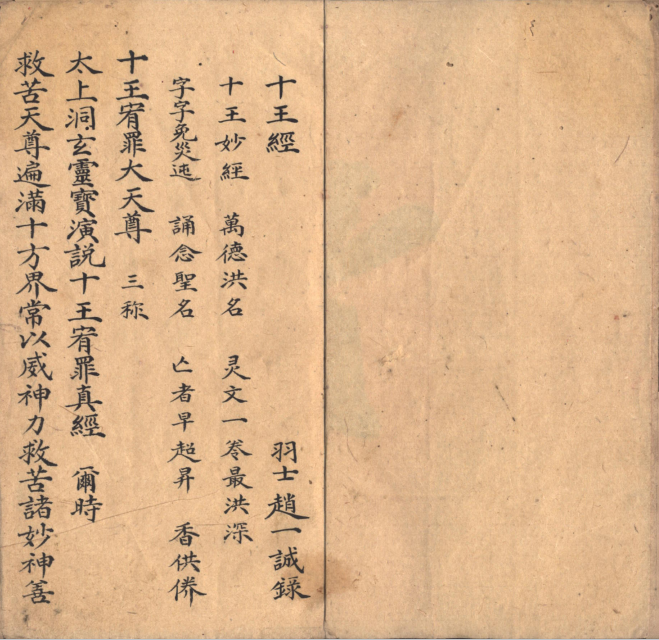 十王經 羽士趙一誠錄
十王妙經 萬德洪名 灵文一卷最洪深
字字免災迍 誦念聖名 亡者早超昇 香供养
十王宥罪大天尊 三称
太上洞玄靈寶演説十王宥罪真經 爾時
救苦天尊遍滿十方界常以威神力救苦諸妙神善